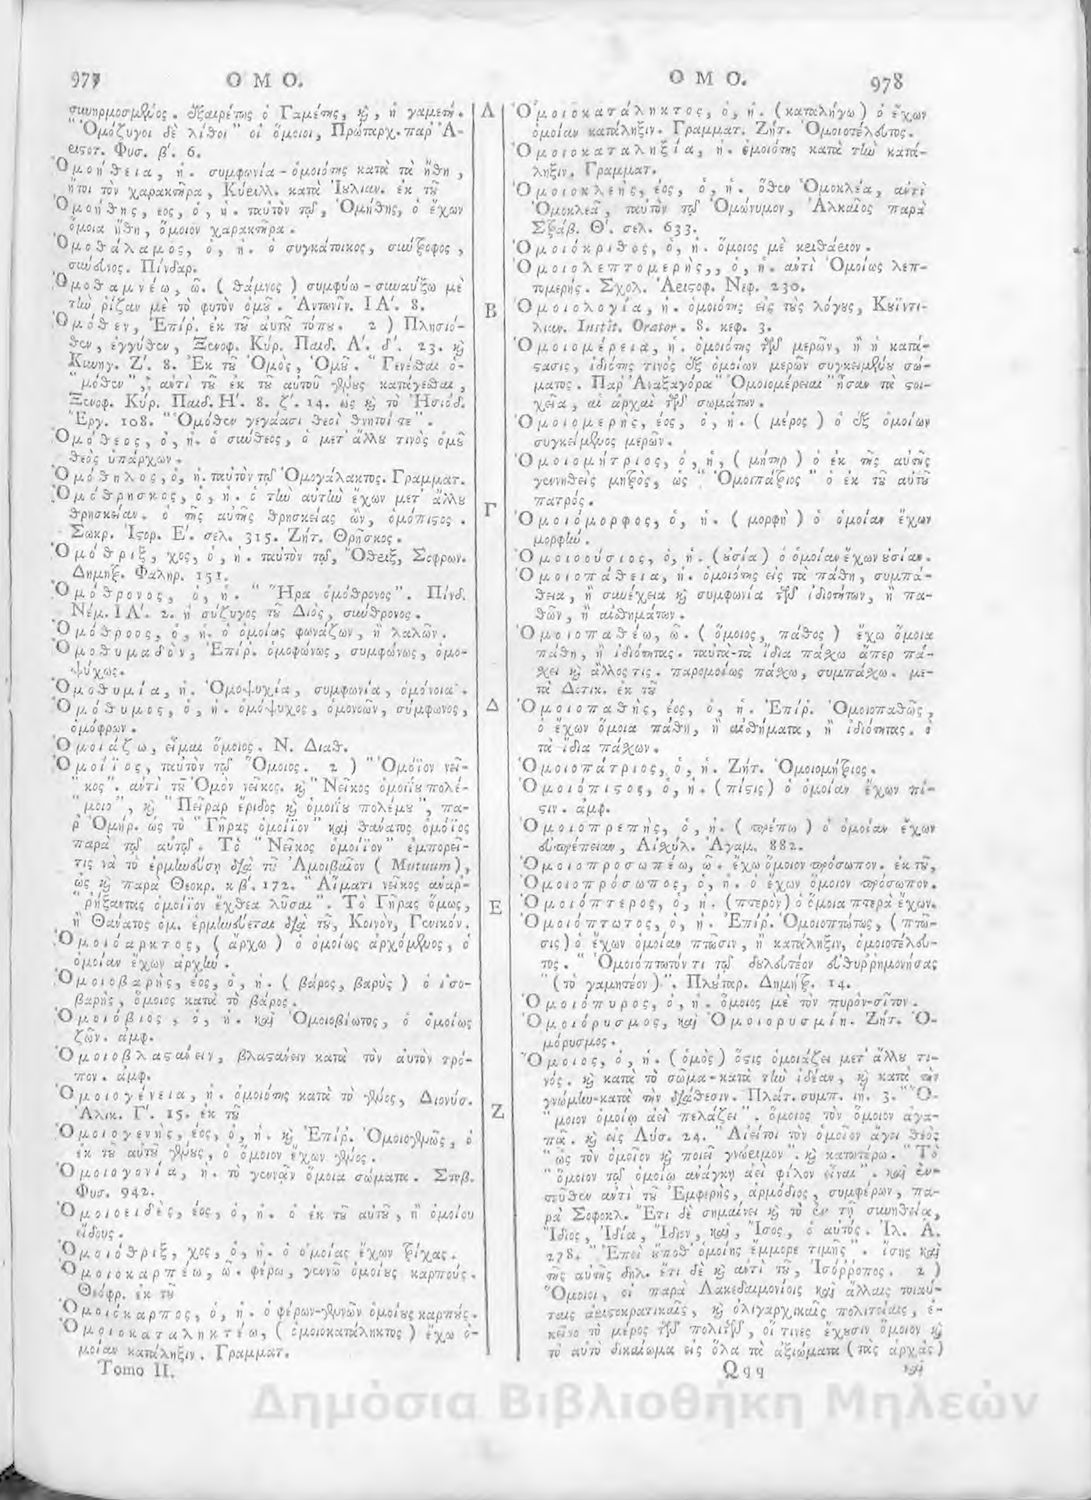 977 ΟΜΟ.
συνηρμοσμένος. ἐξαιρέτως ὁ Γαμέτης, καὶ, ἡ γαμετή.
"Ὁμόζυγοι δὲ λίθοι" οἱ ὅμοιοι, Πρώταρχ. παρ' Ἀ-
ριστοτ. Φυσ. β'. 6.
Ὁμοήθεια, ἡ. συμφωνία - ὁμοιότης κατὰ τὰ ἤθη,
ἤτοι τὸν χαρακτῆρα, Κύριλλ. κατὰ Ἰυλιαν. ἐκ τοῦ
Ὁμοήθης, εος, ὁ, ἡ. ταὐτὸν τῷ, Ὁμήθης, ὁ ἔχων
ὅμοια ἤθη, ὅμοιον χαρακτῆρα.
Ὁμοθάλαμος, ὁ, ἡ. ὁ συγκάτοικος, σύντροφος,
σύνοικος. Πίνδαρ.
Ὁμοθαμνέω, ῶ. (θάμνος) συμφύω - συναυξάω μὲ
τὴν ῥίζαν μὲ τὸ φυτὸν ὁμοῦ. Ἀντωνῖν. ΙΑ'. 8.
Ὁμόθεν, Ἐπίρ. ἐκ τοῦ αὐτοῦ τόπου. 2) Πλησιό-
θεν, ἐγγύθεν, Ξενοφ. Κύρ. Παιδ. Α'. δ'. 23. καὶ
Κυνηγ. Ζ'. 8. Ἐκ τοῦ Ὁμὸς, Ὁμοῦ. "Γενέσθαι ὁ-
"μόθεν", ἀντὶ τοῦ ἐκ τοῦ αὐτοῦ γένους κατάγεσθαι,
Ξενοφ. Κύρ. Παιδ. Η'. 8. ζ'. 14. ὡς καὶ τὸ Ἡσιόδ.
Ἔργ. 108. "Ὁμόθεν γεγάασι θεοὶ θνητοί τε".
Ὁμόθεος, ὁ, ἡ. ὁ σύνθεος, ὁ μετ' ἄλλου τινὸς ὁμοῦ
θεὸς ὑπάρχων.
Ὁμόθηλος, ὁ, ἡ. ταὐτὸν τῷ Ὁμογάλακτος. Γραμματ.
Ὁμόθρησκος, ὁ, ἡ. ὁ τὴν αὐτὴν ἔχων μετ' ἄλλου
θρησκείαν. ὁ τῆς αὐτῆς θρησκείας ὢν, ὁμόπιστος.
Σωκρ. Ἱστορ. Ε'. σελ. 315. Ζήτ. Θρῆσκος.
Ὁμόθριξ, χος, ὁ, ἡ. ταὐτὸν τῷ, Ὄθριξ, Σωφρων.
Δημητρ. Φαληρ. 151.
Ὁμόθρονος, ὁ, ἡ. "Ἥρα ὁμόθρονος". Πίνδ.
Νέμ. ΙΑ'. 2. ἡ σύζυγος τοῦ Διὸς, σύνθρονος.
Ὁμόθροος, ὁ, ἡ. ὁ ὁμοίως φωνάζων, ἢ λαλῶν.
Ὁμοθυμαδὸν, Ἐπίρ. ὁμοφώνως, συμφώνως, ὁμο-
ψύχως.
Ὁμοθυμία, ἡ. Ὁμοψυχία, συμφωνία, ὁμόνοια.
Ὁμόθυμος, ὁ, ἡ. ὁμόψυχος, ὁμονοῶν, σύμφωνος,
ὁμόφρων.
Ὁμοιάζω, εἶμαι ὅμοιος. Ν. Διαθ.
Ὁμοίϊος, ταὐτὸν τῷ Ὅμοιος. 2) "Ὁμοίϊον νεῖ-
"κος". ἀντὶ τοῦ Ὁμὸν νεῖκος. καὶ "Νεῖκος ὁμοιΐου πολέ-
"μοιο", καὶ "Πεῖραρ ἔριδος καὶ ὁμοιΐου πολέμου", πα-
ρ' Ὁμήρ. ὡς τὸ "Γῆρας ὁμοίϊον" καὶ θάνατος ὁμοίϊος
παρὰ τῷ αὐτῷ. Τὸ "Νεῖκος ὁμοίϊον" ἐμπορεῖ-
τις νὰ τὸ ἑρμηνεύσῃ διὰ τοῦ Ἀμοιβαῖον (Mutuum),
ὡς καὶ παρὰ Θεοκρ. κβ'. 172. "Αἵματι νεῖκος ἀναρ-
"ρήξαντας ὁμοίϊον ἔχθεα λῦσαι". Τὸ Γῆρας ὅμως,
ἢ Θάνατος ὁμ. ἑρμηνεύεται διὰ τοῦ, Κοινὸν, Γενικόν.
Ὁμοιόαρκτος, (ἄρχω) ὁ ὁμοίως ἀρχόμενος, ὁ
ὁμοίαν ἔχων ἀρχήν.
Ὁμοιοβαρὴς, έος, ὁ, ἡ. (βάρος, βαρὺς) ὁ ἰσο-
βαρὴς, ὅμοιος κατὰ τὸ βάρος.
Ὁμοιόβιος, ὁ, ἡ. καὶ Ὁμοιοβίωτος, ὁ ὁμοίως
ζῶν. ἀμφ.
Ὁμοιοβλαστάνειν, βλαστάνειν κατὰ τὸν αὐτὸν τρό-
πον. ἀμφ.
Ὁμοιογένεια, ἡ. ὁμοιότης κατὰ τὸ γένος, Διονύσ.
Ἁλικ. Γ'. 15. ἐκ τοῦ
Ὁμοιογενὴς, έος, ὁ, ἡ. καὶ Ἐπίρ. Ὁμοιογενῶς, ὁ
ἐκ τοῦ αὐτοῦ γένους, ὁ ὅμοιον ἔχων γένος.
Ὁμοιογονία, ἡ. τὸ γεννᾷν ὅμοια σώματα. Στοβ.
Φυσ. 942.
Ὁμοιοειδὲς, έος, ὁ, ἡ. ὁ ἐκ τοῦ αὐτοῦ, ἢ ὁμοίου
εἴδους.
Ὁμοιόθριξ, χος, ὁ, ἡ. ὁ ὁμοίας ἔχων τρίχας.
Ὁμοιοκαρπέω, ῶ. φέρω, γεννῶ ὁμοίους καρπούς.
Θεόφρ. ἐκ τοῦ
Ὁμοιόκαρπος, ὁ, ἡ. ὁ φέρων-γεννῶν ὁμοίους καρπούς.
Ὁμοιοκαταληκτέω, (ὁμοιοκατάληκτος) ἔχω ὁ-
μοίαν κατάληξιν. Γραμματ.
Tomo II.
Α
Β
Γ
Δ
Ε
Ζ
ΟΜΟ. 978
Ὁμοιοκατάληκτος, ὁ, ἡ. (καταλήγω) ὁ ἔχων
ὁμοίαν κατάληξιν. Γραμματ. Ζήτ. Ὁμοιοτέλευτος.
Ὁμοιοκαταληξία, ἡ. ὁμοιότης κατὰ τὴν κατά-
ληξιν. Γραμματ.
Ὁμοιοκλεὴς, έος, ὁ, ἡ. ὅθεν Ὁμοκλέα, ἀντὶ
Ὁμοκλεᾶ, ταὐτὸν τῷ Ὁμώνυμον, Ἀλκαῖος παρὰ
Στράβ. Θ'. σελ. 633.
Ὁμοιόκριθος, ὁ, ἡ. ὅμοιος μὲ κριθάριον.
Ὁμοιολεπτομερὴς,, ὁ, ἡ. ἀντὶ Ὁμοίως λεπ-
τομερής. Σχολ. Ἀριστοφ. Νεφ. 230.
Ὁμοιολογία, ἡ. ὁμοιότης εἰς τοὺς λόγους, Κυϊντι-
λιαν. Instit. Orator. 8. κεφ. 3.
Ὁμοιομέρεια, ἡ. ὁμοιότης τῶν μερῶν, ἢ ἡ κατά-
στασις, ἰδιότης τινὸς ἐξ ὁμοίων μερῶν συγκειμένου σώ-
ματος. Παρ' Ἀναξαγόρᾳ "Ὁμοιομέρειαι" ἦσαν τὰ στοι-
χεῖα, αἱ ἀρχαὶ τῶν σωμάτων.
Ὁμοιομερὴς, έος, ὁ, ἡ. (μέρος) ὁ ἐξ ὁμοίων
συγκείμενος μερῶν.
Ὁμοιομήτριος, ὁ, ἡ, (μήτηρ) ὁ ἐκ τῆς αὐτῆς
γεννηθεὶς μητρὸς, ὡς "Ὁμοιπάτριος" ὁ ἐκ τοῦ αὐτοῦ
πατρός.
Ὁμοιόμορφος, ὁ, ἡ. (μορφὴ) ὁ ὁμοίαν ἔχων
μορφήν.
Ὁμοιοούσιος, ὁ, ἡ. (οὐσία) ὁ ὁμοίαν ἔχων οὐσίαν.
Ὁμοιοπάθεια, ἡ. ὁμοιότης εἰς τὰ πάθη, συμπά-
θεια, ἢ συνέχεια καὶ συμφωνία τῶν ἰδιοτήτων, ἢ πα-
θῶν, ἢ αἰσθημάτων.
Ὁμοιοπαθέω, ῶ. (ὅμοιος, πάθος) ἔχω ὅμοια
πάθη, ἢ ἰδιότητας. ταῦτα-τὰ ἴδια πάσχω ἅπερ πά-
σχει καὶ ἄλλος τις. παρομοίως πάσχω, συμπάσχω. με-
τὰ Δοτικ. ἐκ τοῦ
Ὁμοιοπαθὴς, έος, ὁ, ἡ. Ἐπίρ. Ὁμοιοπαθῶς,
ὁ ἔχων ὅμοια πάθη, ἢ αἰσθήματα, ἢ ἰδιότητας. ὁ
τὰ ἴδια πάσχων.
Ὁμοιοπάτριος, ὁ, ἡ. Ζήτ. Ὁμοιομήτριος.
Ὁμοιόπιστος, ὁ, ἡ. (πίστις) ὁ ὁμοίαν ἔχων πί-
στιν. ἀμφ.
Ὁμοιοπρεπὴς, ὁ, ἡ. (πρέπω) ὁ ὁμοίαν ἔχων
εὐπρέπειαν, Αἰσχύλ. Ἀγαμ. 882.
Ὁμοιοπροσωπέω, ῶ. ἔχω ὅμοιον πρόσωπον. ἐκ τοῦ,
Ὁμοιοπρόσωπος, ὁ, ἡ. ὁ ἔχων ὅμοιον πρόσωπον.
Ὁμοιόπτερος, ὁ, ἡ. (πτερὸν) ὁ ὅμοια πτερὰ ἔχων.
Ὁμοιόπτωτος, ὁ, ἡ. Ἐπίρ. Ὁμοιοπτώτως, (πτῶ-
σις) ὁ ἔχων ὁμοίαν πτῶσιν, ἢ κατάληξιν, ὁμοιοτέλευ-
τος. "Ὁμοιόπτωτόν τι τῷ δουλευτέον εὐθυρρημονήσας
"(τὸ γαμητέον)". Πλούταρ. Δημήτρ. 14.
Ὁμοιόπυρος, ὁ, ἡ. ὅμοιος μὲ τὸν πυρὸν-σῖτον.
Ὁμοιόρυσμος, καὶ Ὁμοιορυσμίη. Ζήτ. Ὁ-
μόρυσμος.
Ὅμοιος, ὁ, ἡ. (ὁμὸς) ὅστις ὁμοιάζει μετ' ἄλλου τι-
νός. καὶ κατὰ τὸ σῶμα-κατὰ τὴν ἰδέαν, καὶ κατὰ τὴν
γνώμην-κατὰ τὴν διάθεσιν. Πλάτ. συμπ. ιή. 3. "Ὅ-
"μοιον ὁμοίῳ ἀεὶ πελάζει". ὅμοιος τὸν ὅμοιον ἀγα-
πᾷ. καὶ εἰς Λύσ. 24. "Αἰεί τοι τὸν ὁμοῖον ἄγει θεὸς
"ὡς τὸν ὁμοῖον καὶ ποιεῖ γνώριμον". καὶ κατωτέρω. "Τὸ
"ὅμοιον τῷ ὁμοίῳ ἀνάγκη ἀεὶ φίλον εἶναι". καὶ ἐν-
τεῦθεν ἀντὶ τοῦ Ἐμφερὴς, ἁρμόδιος, συμφέρων, πα-
ρὰ Σοφοκλ. Ἔτι δὲ σημαίνει καὶ τὸ ἐν τῇ συνηθείᾳ,
Ἴδιος, Ἰδία, Ἴδιον, καὶ, Ἴσος, ὁ αὐτός. Ἰλ. Α.
278. "Ἐπεὶ οὔποθ' ὁμοίης ἔμμορε τιμῆς". ἴσης καὶ
τῆς αὐτῆς δηλ. ἔτι δὲ καὶ ἀντὶ τοῦ, Ἰσόρροπος. 2)
Ὅμοιοι, οἱ παρὰ Λακεδαιμονίοις καὶ ἄλλαις τοιαύ-
ταις ἀριστοκρατικαῖς, καὶ ὀλιγαρχικαῖς πολιτείαις, ἐ-
κεῖνο τὸ μέρος τῶν πολιτῶν, οἵ τινες ἔχουσιν ὅμοιον καὶ
τὸ αὐτὸ δικαίωμα εἰς ὅλα τὰ ἀξιώματα (τὰς ἀρχὰς)
Qqq καὶ
Δημόσια Βιβλιοθήκη Μηλεών